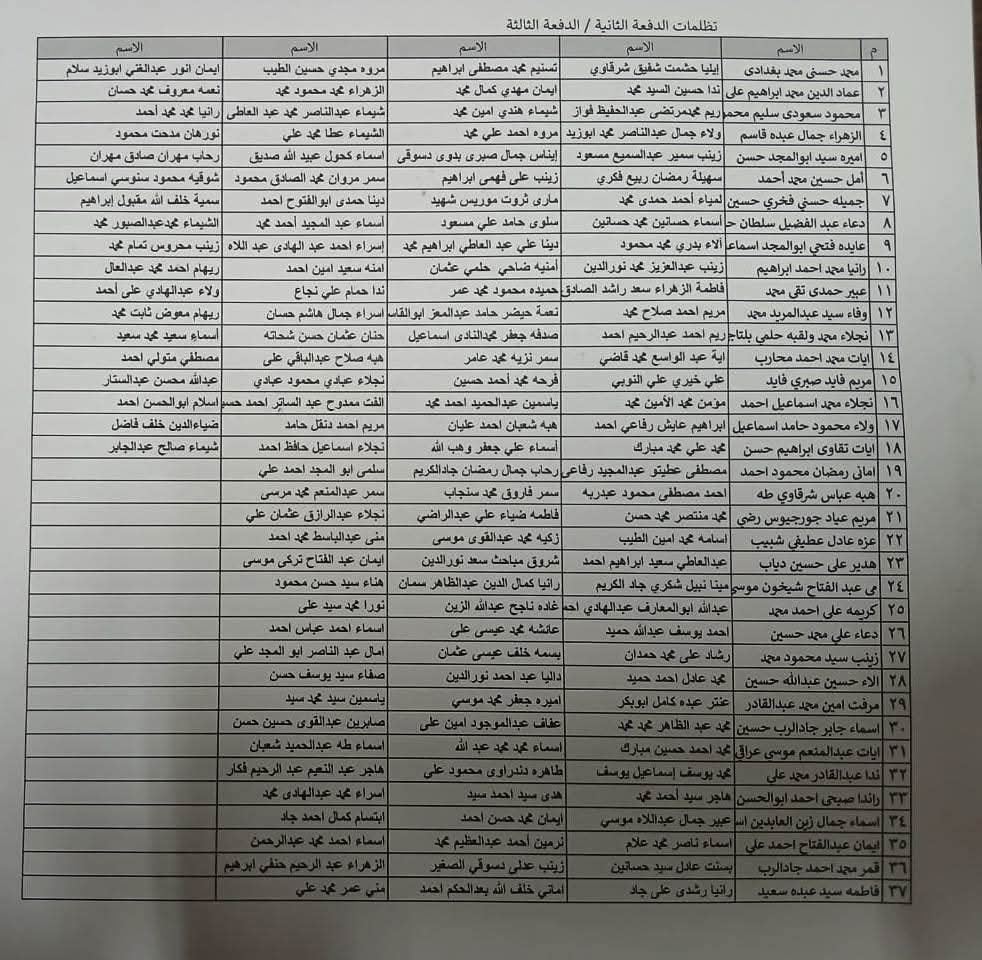 تظلمات الدفعة الثانية / الدفعة الثالثة
م الاسم الاسم الاسم الاسم الاسم
١ محمد حسنى محمد بغدادى إيليا حشمت شفيق شرقاوي تسنيم محمد مصطفى ابراهيم مروه مجدي حسين الطيب ايمان انور عبدالغني ابوزيد سلام
٢ عماد الدين محمد ابراهيم على ندا حسين السيد محمد ايمان مهدي كمال محمد الزهراء محمد محمود محمد نعمه معروف محمد حسان
٣ محمود سعودى سليم محمو ريم محمدمرتضى عبدالحفيظ فواز شيماء هندي امين محمد شيماء عبدالناصر محمد عبد العاطى رانيا محمد محمد أحمد
٤ الزهراء جمال عبده قاسم ولاء جمال عبدالناصر محمد ابوزيد مروه احمد علي محمد الشيماء عطا محمد علي نورهان مدحت محمود
٥ اميره سيد ابوالمجد حسن زينب سمير عبدالسميع مسعود إيناس جمال صبرى بدوى دسوقى اسماء كحول عبيد الله صديق رحاب مهران صادق مهران
٦ أمل حسين محمد أحمد سهيلة رمضان ربيع فكري زينب على فهمى ابراهيم سمر مروان محمد الصادق محمود شوقيه محمود سنوسي اسماعيل
٧ جميله حسني فخري حسين لمياء أحمد حمدى محمد مارى ثروت موريس شهيد دينا حمدى ابوالفتوح احمد سمية خلف الله مقبول إبراهيم
٨ دعاء عبد الفضيل سلطان حـ أسماء حسانين محمد حسانين سلوى حامد علي مسعود أسماء عبد المجيد أحمد محمد الشيماء محمدعبدالصبور محمد
٩ عايده فتحي ابوالمجد اسماعـ آلاء بدري محمد محمود دينا علي عبد العاطي ابراهيم محمد إسراء احمد عبد الهادى عبد اللاه زينب محروس تمام محمد
١٠ رانيا محمد احمد ابراهيم زينب عبدالعزيز محمد نورالدين أمنيه ضاحي حلمي عثمان امنه سعيد امين احمد ريهام احمد محمد عبدالعال
١١ عبير حمدى تقى محمد فاطمة الزهراء سعد راشد الصادق حميده محمود محمد عمر ندا حمام علي نجاع ولاء عبدالهادي على أحمد
١٢ وفاء سيد عبدالمريد محمد مريم احمد صلاح محمد نعمة حيضر حامد عبدالمعز ابوالقاسـ إسراء جمال هاشم حسان ريهام معوض ثابت محمد
١٣ نجلاء محمد ولقبه حلمي بلتاجـ ريم احمد عبدالرحيم احمد صدفه جعفر محمدالنادى اسماعيل حنان عثمان حسن شحاته أسماء سعيد محمد سعيد
١٤ ايات محمد احمد محارب آية عبد الواسع محمد قاضي سمر نزيه محمد عامر هبه صلاح عبدالباقي على مصطفي متولي احمد
١٥ مريم فايد صبري فايد علي خيري علي النوبي فرحه محمد أحمد حسين نجلاء عبادي محمود عبادي عبدالله محسن عبدالستار
١٦ نجلاء محمد اسماعيل احمد مؤمن محمد الأمين محمد ياسمين عبدالحميد احمد محمد الفت ممدوح عبد الساتر احمد حسـ اسلام ابوالحسن احمد
١٧ ولاء محمود حامد اسماعيل ابراهيم عايش رفاعي احمد هبه شعبان احمد عليان مريم احمد دنقل حامد ضياءالدين خلف فاضل
١٨ ايات تقاوى ابراهيم حسن محمد علي محمد مبارك أسماء علي جعفر وهب الله نجلاء اسماعيل حافظ احمد شيماء صالح عبدالجابر
١٩ امانى رمضان محمود احمد مصطفى عطيتو عبدالمجيد رفاعى رحاب جمال رمضان جادالكريم سلمى ابو المجد احمد علي
٢٠ هبه عباس شرقاوي طه احمد مصطفى محمود عبدربه سمر فاروق محمد سنجاب سمر عبدالمنعم محمد مرسى
٢١ مريم عياد جورجيوس رضي محمد منتصر محمد حسن فاطمه ضياء علي عبدالراضي نجلاء عبدالرازق عثمان علي
٢٢ عزه عادل عطيفي شبيب اسامه محمد امين الطيب زكيه محمد عبدالقوى موسى منى عبدالباسط محمد احمد
٢٣ هدير على حسين دياب عبدالعاطي سعيد ابراهيم احمد شروق مباحث سعد نورالدين ايمان عبد الفتاح تركى موسى
٢٤ مى عبد الفتاح شيخون موسى مينا نبيل شكري جاد الكريم رانيا كمال الدين عبدالظاهر سمان هناء سيد حسن محمود
٢٥ كريمه على احمد محمد عبدالله ابوالمعارف عبدالهادي احمـ غاده ناجح عبدالله الزين نورا محمد سيد على
٢٦ دعاء علي محمد حسين احمد يوسف عبدالله حميد عائشه محمد عيسى على اسماء احمد عباس احمد
٢٧ زينب سيد محمود محمد رشاد على محمد حمدان بسمه خلف عيسى عثمان امال عبد الناصر ابو المجد علي
٢٨ الاء حسين عبدالله حسين محمد عادل احمد حميد داليا عبد احمد نورالدين صفاء سيد يوسف حسن
٢٩ مرفت امين محمد عبدالقادر عنتر عبده كامل ابوبكر اميره جعفر محمد موسي ياسمين سيد محمد سيد
٣٠ اسماء جابر جادالرب حسين محمد عبد الظاهر محمد محمد عفاف عبدالموجود امين على صابرين عبدالقوى حسين حسن
٣١ ايات عبدالمنعم موسى عراقى محمد احمد حسين مبارك اسماء محمد محمد عبد الله اسماء طه عبدالحميد شعبان
٣٢ ندا عبدالقادر محمد علي محمد يوسف إسماعيل يوسف طاهره دندراوى محمود على هاجر عبد النعيم عبد الرحيم فكار
٣٣ راندا صبحى احمد ابوالحسن هاجر سيد أحمد محمد هدى سيد احمد سيد اسراء محمد عبدالهادى محمد
٣٤ اسماء جمال زين العابدين اسـ عبير جمال عبداللاه موسي ايمان محمد حسن احمد ابتسام كمال احمد جاد
٣٥ ايمان عبدالفتاح احمد علي اسماء ناصر محمد علام نرمين أحمد عبدالعظيم محمد اسماء احمد محمد عبدالرحمن
٣٦ قمر محمد احمد جادالرب بسنت عادل سيد حسانين زينب عدلى دسوقي الصغير الزهراء عبد الرحيم حنفي ابرهيم
٣٧ فاطمه سيد عبده سعيد رانيا رشدى على جاد اماني خلف الله بعدالحكم احمد مني عمر محمد علي